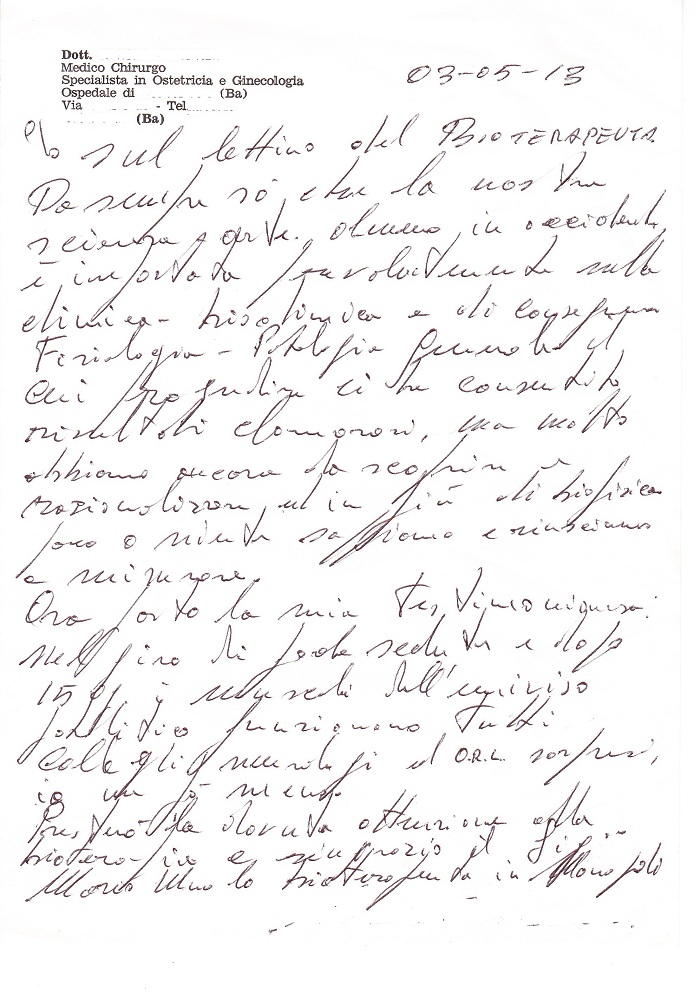 Dott.
Medico Chirurgo
Specialista in Ostetricia e Ginecologia
Ospedale di (Ba)
Via - Tel
(Ba)
03-05-13
Io sul lettino del BIOTERAPEUTA
Da sempre sò, che la nostra
scienza e arte. almeno in occidente,
è importata prevalentemente sulla
clinica - biochimica e di conseguenza
Fisiologia - Patologia Generale il
cui progredire ci ha consentito
risultati clamorosi, ma molto
abbiamo ancora da scoprire e
razionalizzare, in più di biofisica
poco o niente sappiamo e riusciamo
a misurare.
Ora porto la mia testimonianza:
Nel giro di poche sedute e dopo
15 gg i muscoli dell'emiviso
paralitico funzionano tutti
Colleghi neurologi ed O.R.L. sorpresi,
io un pò meno.
Presterò la dovuta attenzione alla
bioterapia e ringrazio il
Mario bioterapeuta in Monopoli